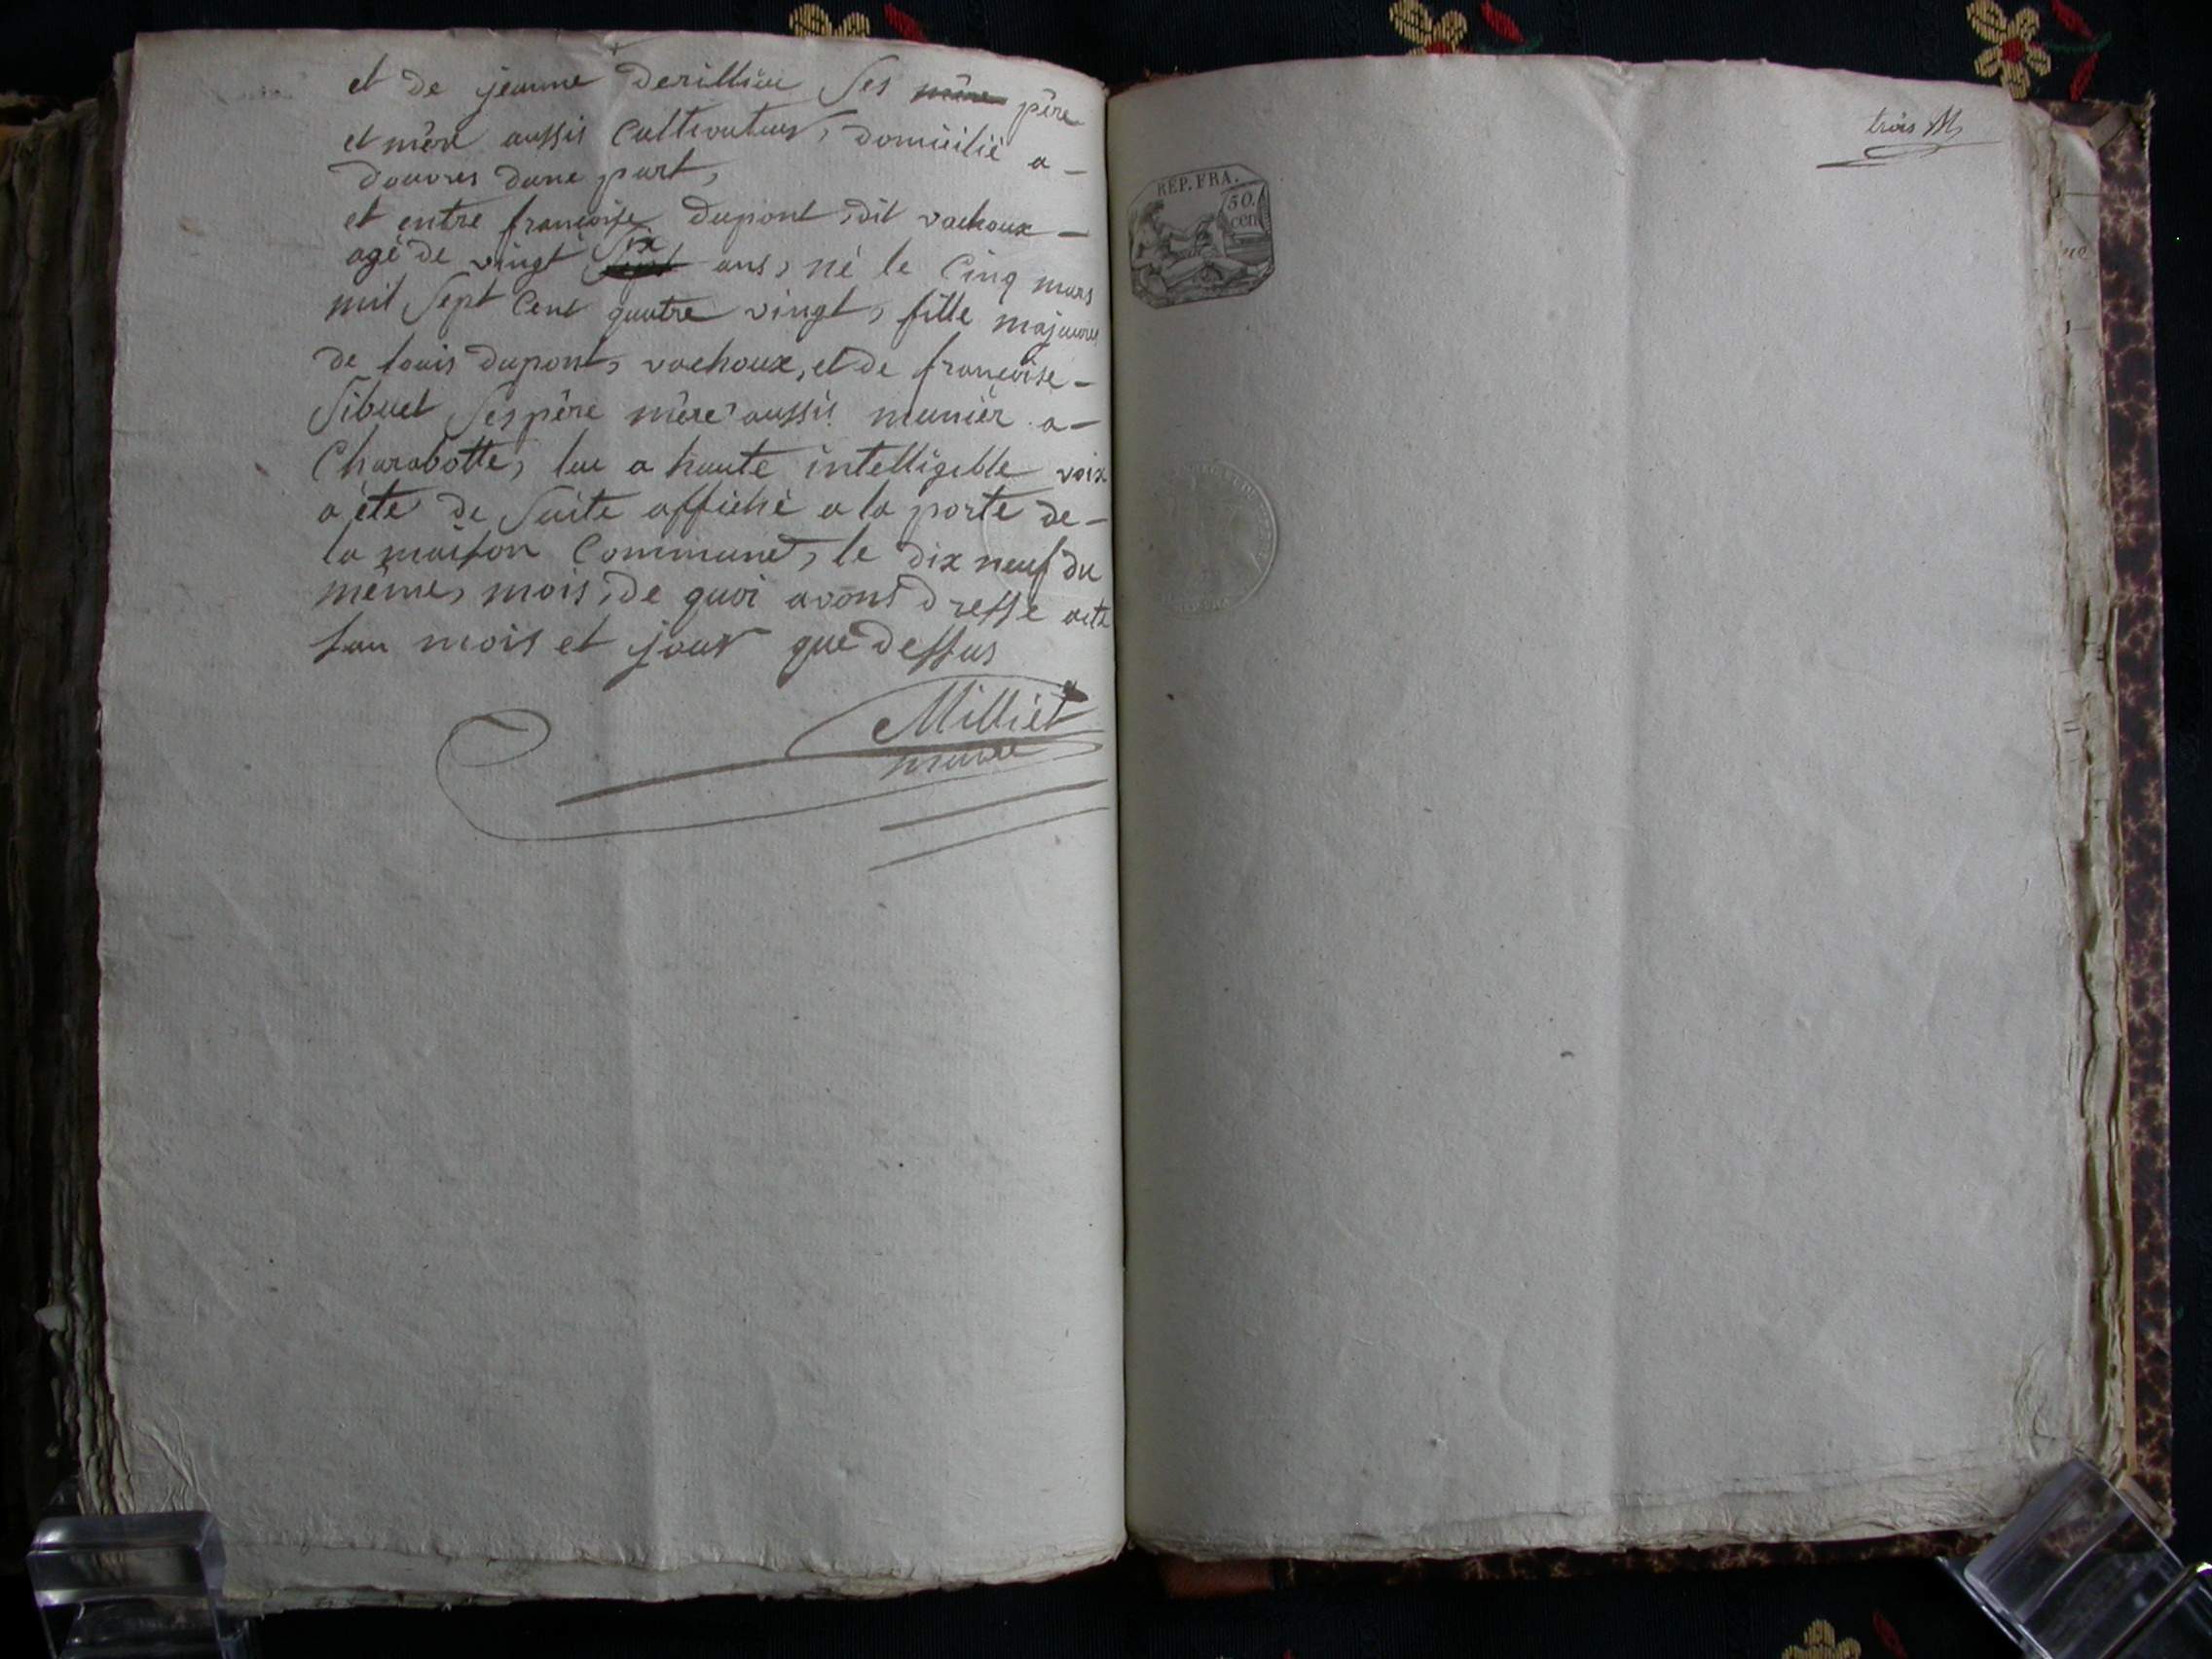 et de jeanne derillieu ses mère père
et mère aussis Cultivateurs, domicilié a -
douvres dune part,
et entre françoise Dupont, dit vachoux -
agé de vingt sept six ans, né le Cinq mars
mil sept Cent quatre vingt, fille majeure
de louis dupont, vachoux, et de françoise -
Sibuet ses père mère aussis munièr a -
Charabotte, lue a haute intelligible voix
a été de suite affiché a la porte de -
la maison Commune, le dix neuf du
même, mois, de quoi avons dressé acte
lan mois et jour que dessus
Milliet
maire
trois M
REP. FRA.
50.
cen